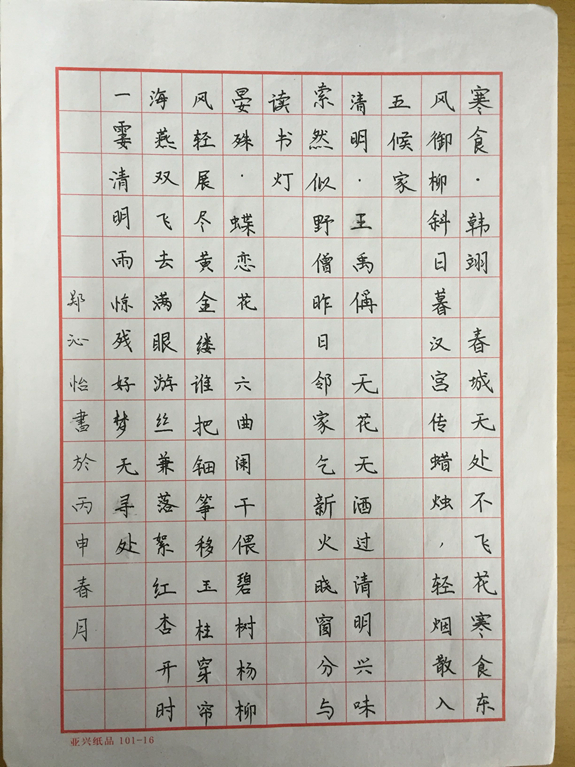 寒食·韩翊 春城无处不飞花寒食东
风御柳斜日暮汉宫传蜡烛，轻烟散入
五候家
清明·王禹偁 无花无酒过清明兴味
索然似野僧昨日邻家乞新火晓窗分与
读书灯
晏殊·蝶恋花 六曲阑干偎碧树杨柳
风轻展尽黄金缕谁把钿筝移玉柱穿帘
海燕双飞去满眼游丝兼落絮红杏开时
一霎清明雨惊残好梦无寻处
郑沁怡書於丙申春月
亚兴纸品 101-16